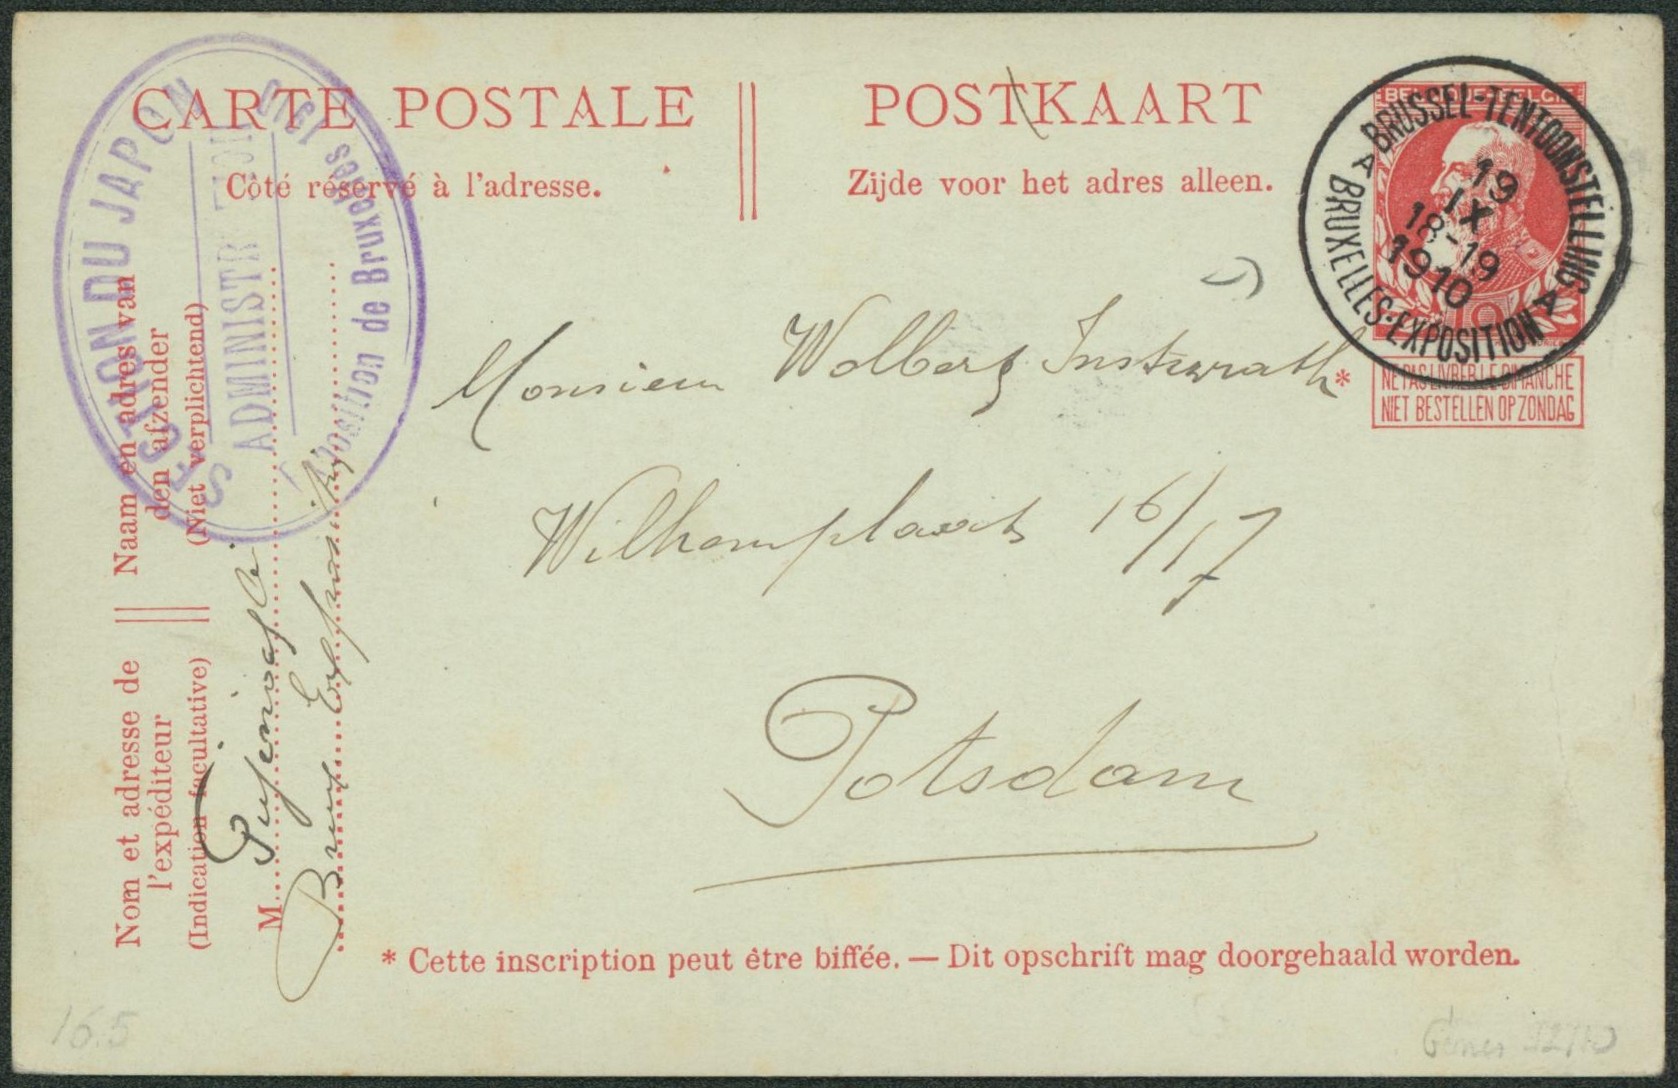 CARTE POSTALE
POSTKAART
Côté réservé à l'adresse.
Zijde voor het adres alleen.
SECTION DU JAPON
ADMINISTRATION
Exposition de Bruxelles 1910
BELGIQUE-BELGIE
10
BRUSSEL-TENTOONSTELLING
19
IX
18-19
1910
A BRUXELLES-EXPOSITION A
NE PAS LIVRER LE DIMANCHE
NIET BESTELLEN OP ZONDAG
Monsieur Wolberg *
16/17
Potsdam
Naam en adres van
den afzender
(Niet verplichtend)
Nom et adresse de
l'expéditeur
(Indication facultative)
M
Brux
* Cette inscription peut être biffée. — Dit opschrift mag doorgehaald worden.
16.5